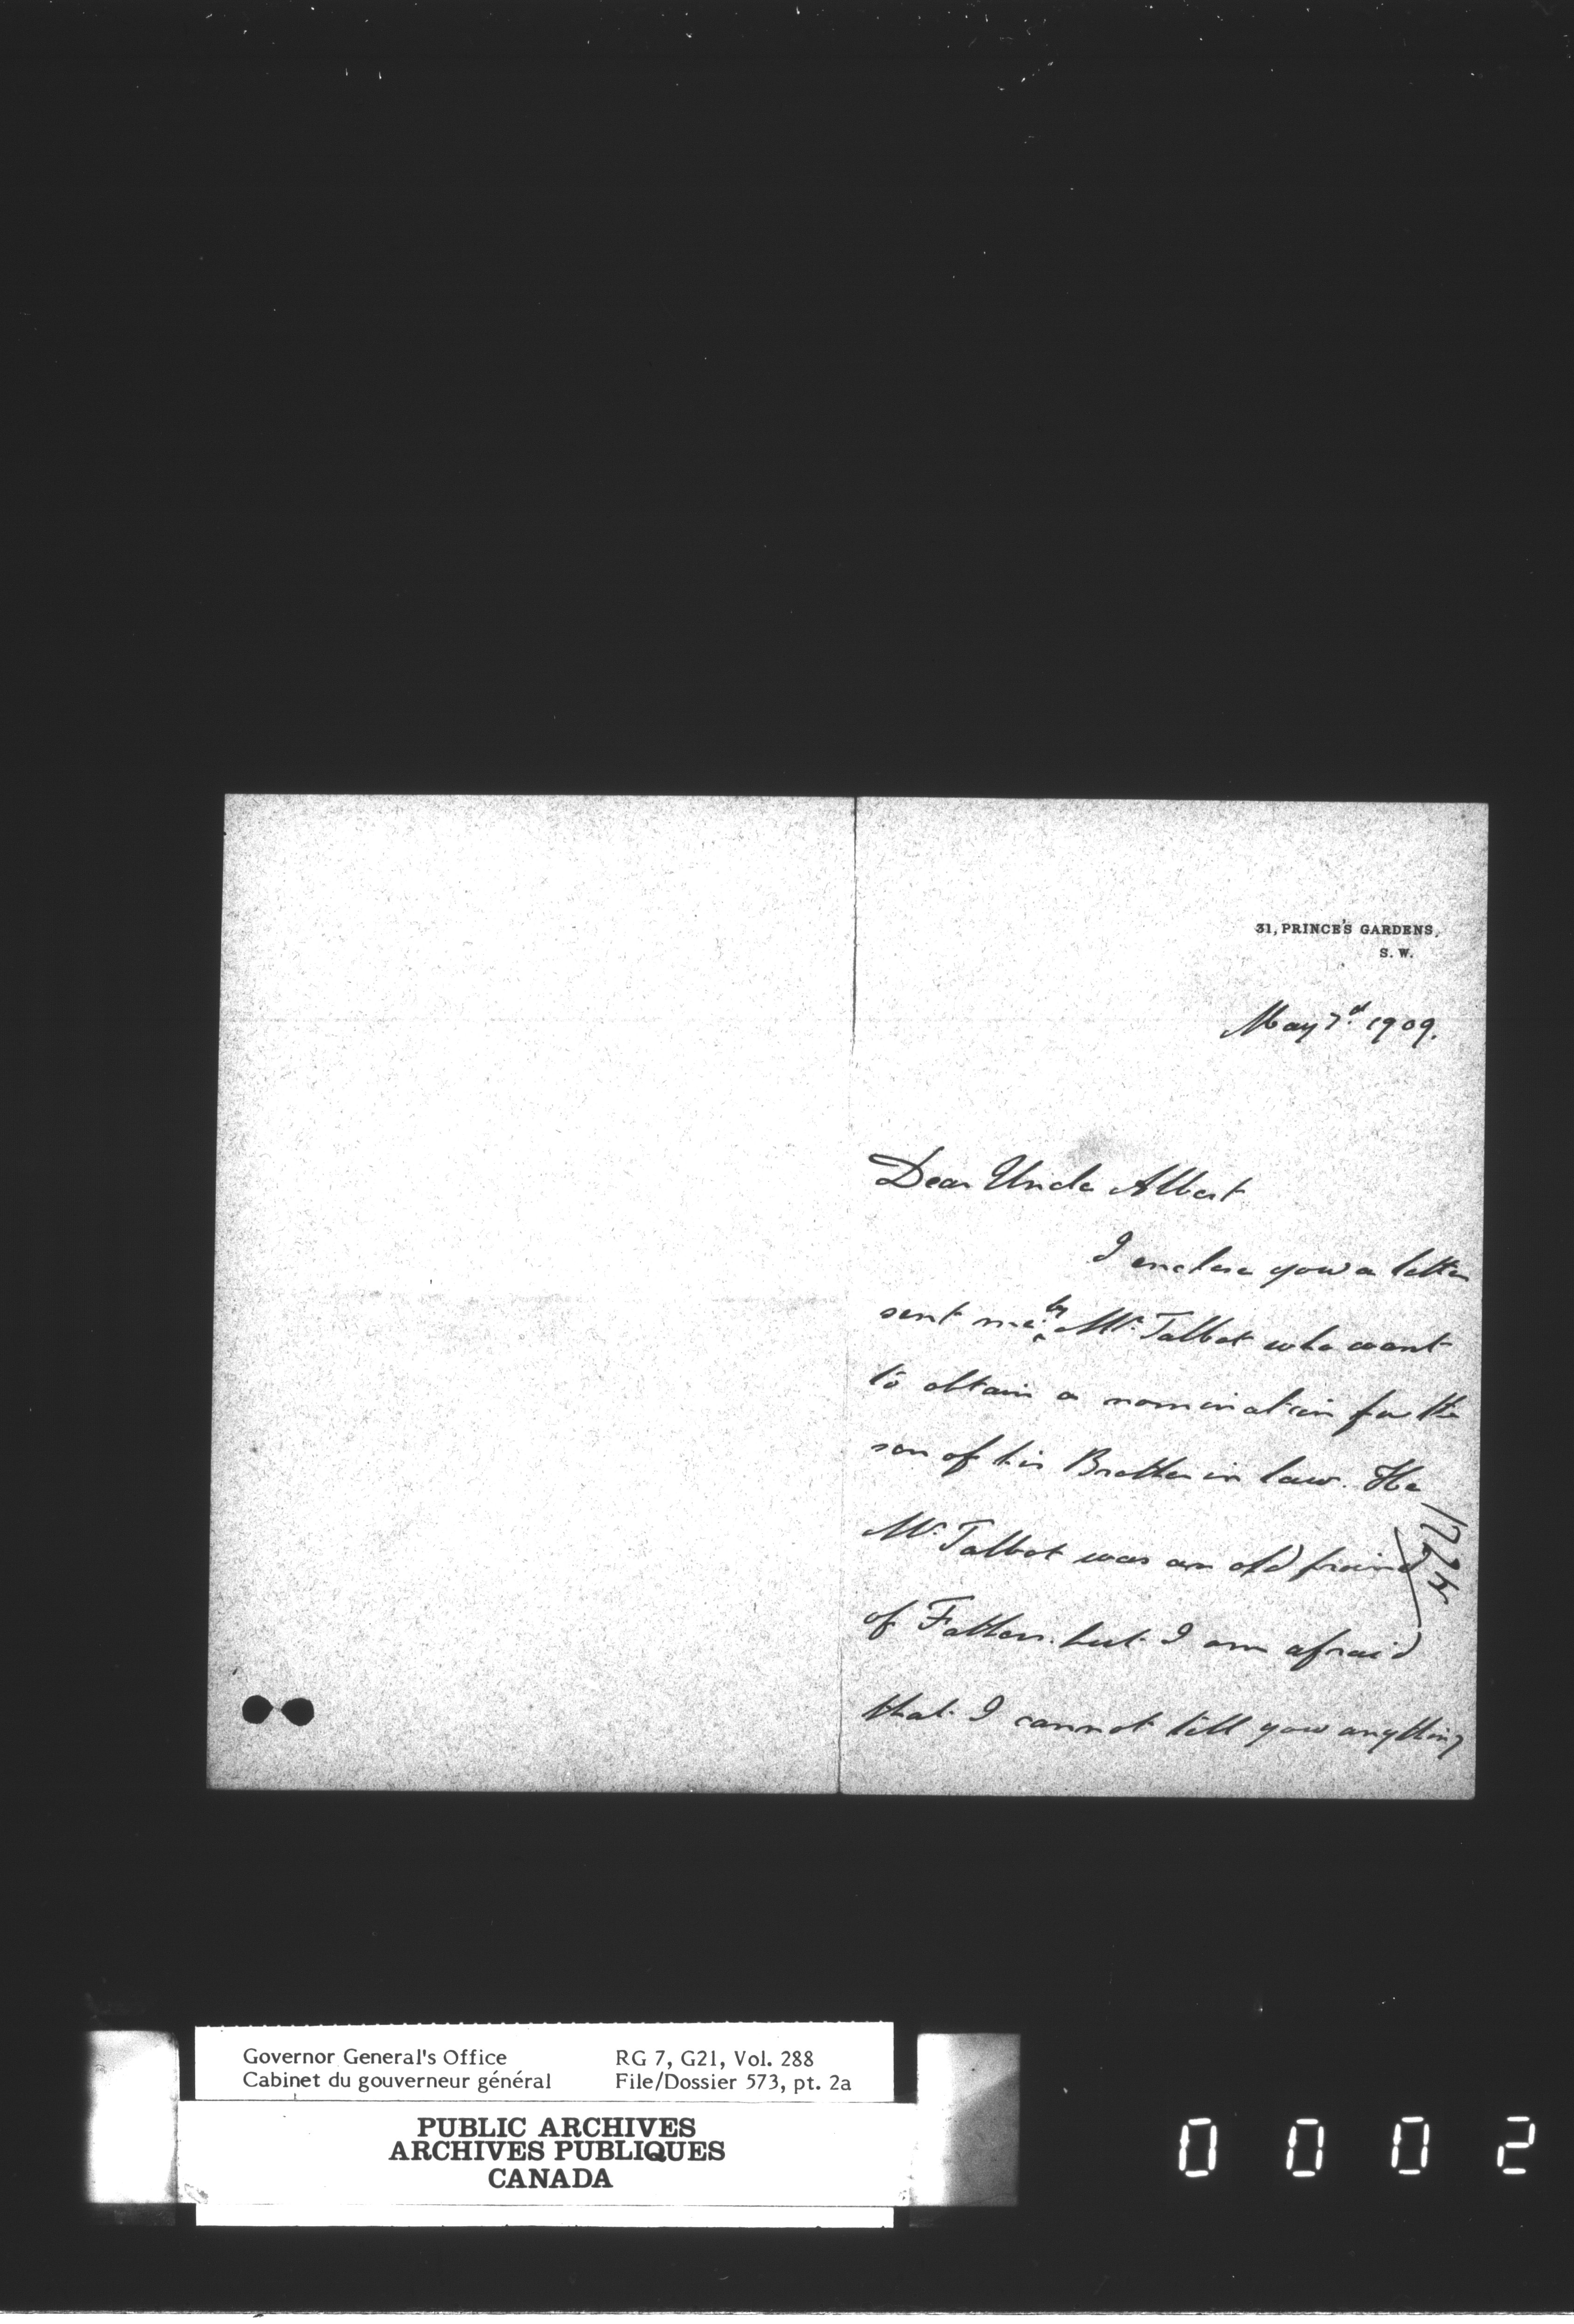 31, PRINCE'S GARDENS,
S. W.
May 3d. 1909.
Dear Uncle Albert
I enclose you a letter
sent me by Mr. Talbot who want
to obtain a nomination for the
son of his Brother in law. He
Mr. Talbot was an old friend
of Father. but I am afraid
that I cannot tell you anything
Governor General's Office
Cabinet du gouverneur général
RG 7, G21, Vol. 288
File/Dossier 573, pt. 2a
PUBLIC ARCHIVES
ARCHIVES PUBLIQUES
CANADA
0002